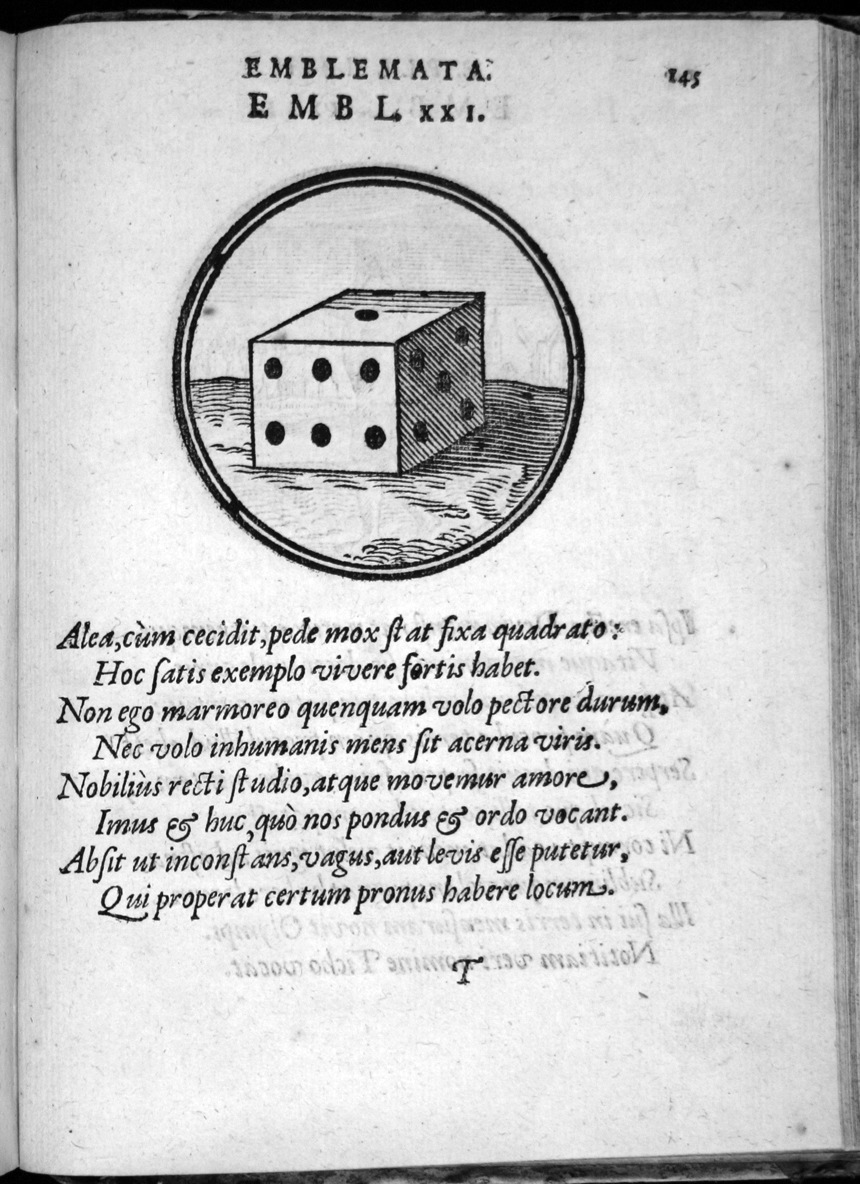 EMBLEMATA. 145
EMBL. XXI.
Alea, cùm cecidit, pede mox ſtat fixa quadrato:
Hoc ſatis exemplo vivere fortis habet.
Non ego marmoreo quenquam volo pectore durum,
Nec volo inhumanis mens ſit acerna viris.
Nobiliùs recti ſtudio, atque movemur amore,
Imus & huc, quò nos pondus & ordo vocant.
Abſit ut inconſtans, vagus, aut levis eſſe putetur,
Qui properat certum pronus habere locum.
T